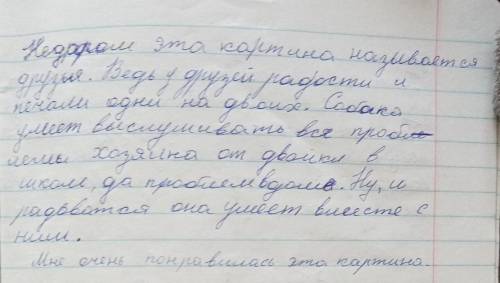 Недаром эта картина называется
друзья. Ведь у друзей радости и
печали одни на двоих. Собака
умеет выслушивать все пробл
лемы хозяина от двойки в
школе, да проблем вдома. Ну, и
радоватся она умеет вместе с
ним.
Мне очень понравилась эта картина.